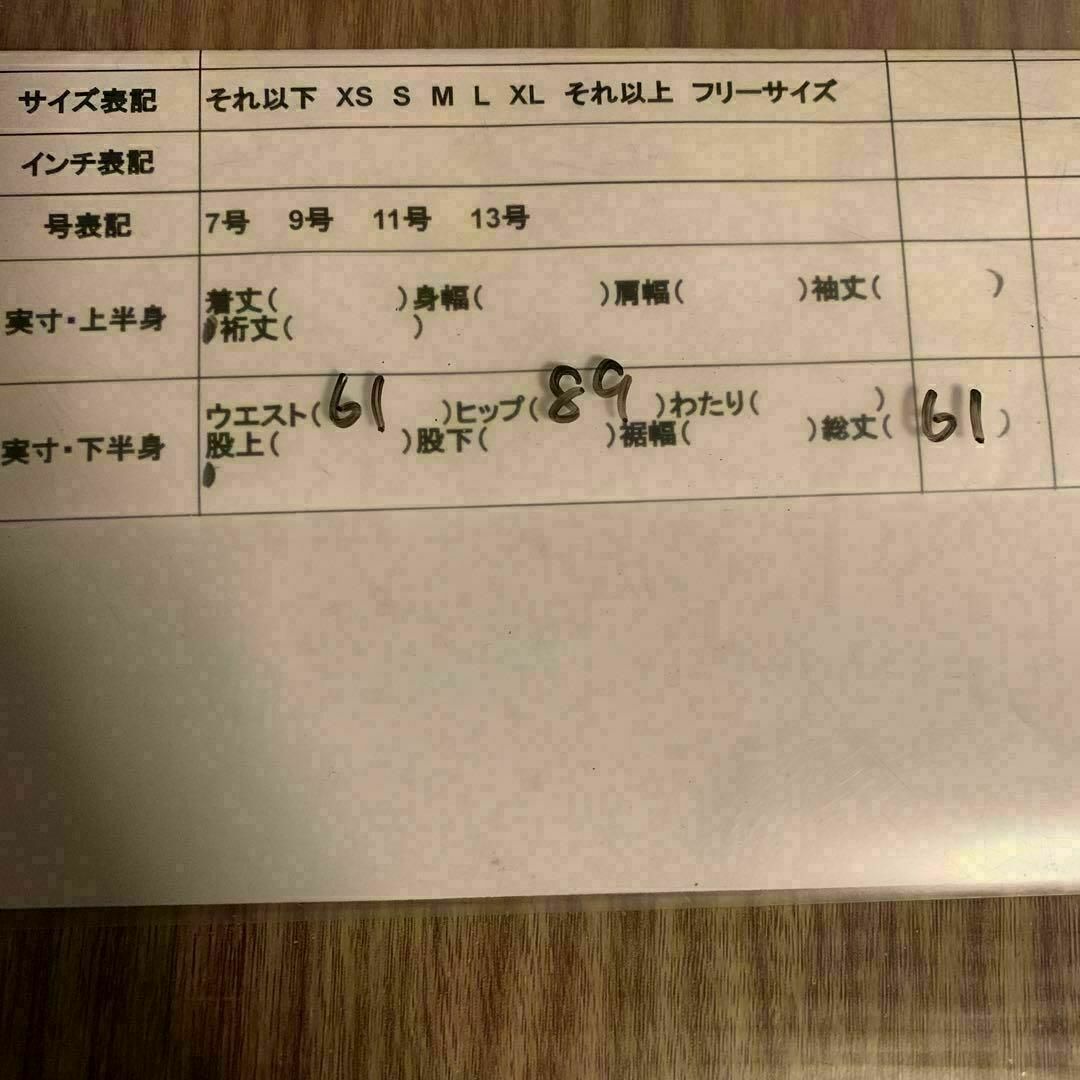 サイズ表記 それ以下 XS S M L XL それ以上 フリーサイズ
インチ表記
号表記 7号 9号 11号 13号
実寸・上半身 着丈( )身幅( )肩幅( )袖丈( )
裄丈( )
実寸・下半身 ウエスト(61 )ヒップ(89 )わたり( )
股上( )股下( )裾幅( )総丈( 61 )